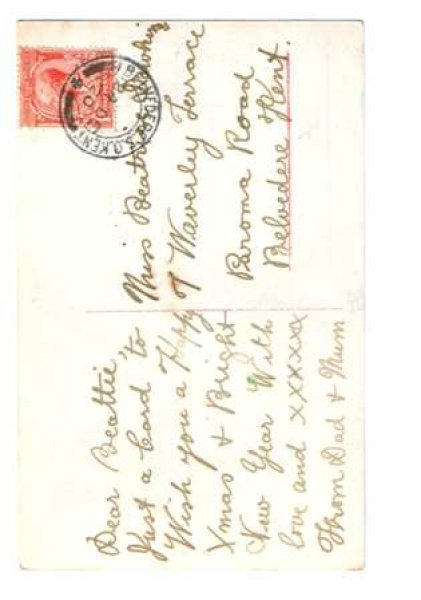 Dear Beattie,
Just a Card to
Wish you a Happy
Xmas + Bright
New Year With
love and xxxxxx
From Dad + Mum
Miss Beatrice
7 Waverley Terrace
Paroma Road
Belvedere Kent.
S.O. KENT